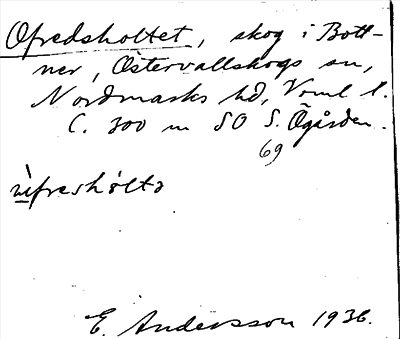 Ofredsholtet, skog i Bott-
ner, Östervallskogs sn,
Nordmarks hd, Vrml l.
C. 300 m SO S. Ögården.
69
ùfreshóltə
E. Andersson 1936.